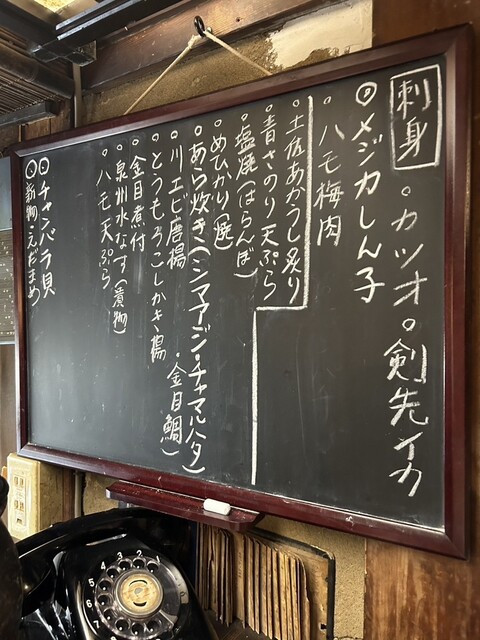 刺身 。カツオ。剣先イカ
◎メジカしん子
・ハモ梅肉
・土佐あかうし炙り
・青さのり天ぷら
・塩焼(はらんぼ)
・めひかり(焼)
・あら炊き(シマアジ・チャマルハタ)
・金目鯛
・川エビ唐揚
・とうもろこしかき揚
・金目煮付
・泉州水なす(漬物)
・ハモ天ぷら
◎チャンバラ貝
◎新物・えだまめ
1
2
3
4
5
6
7